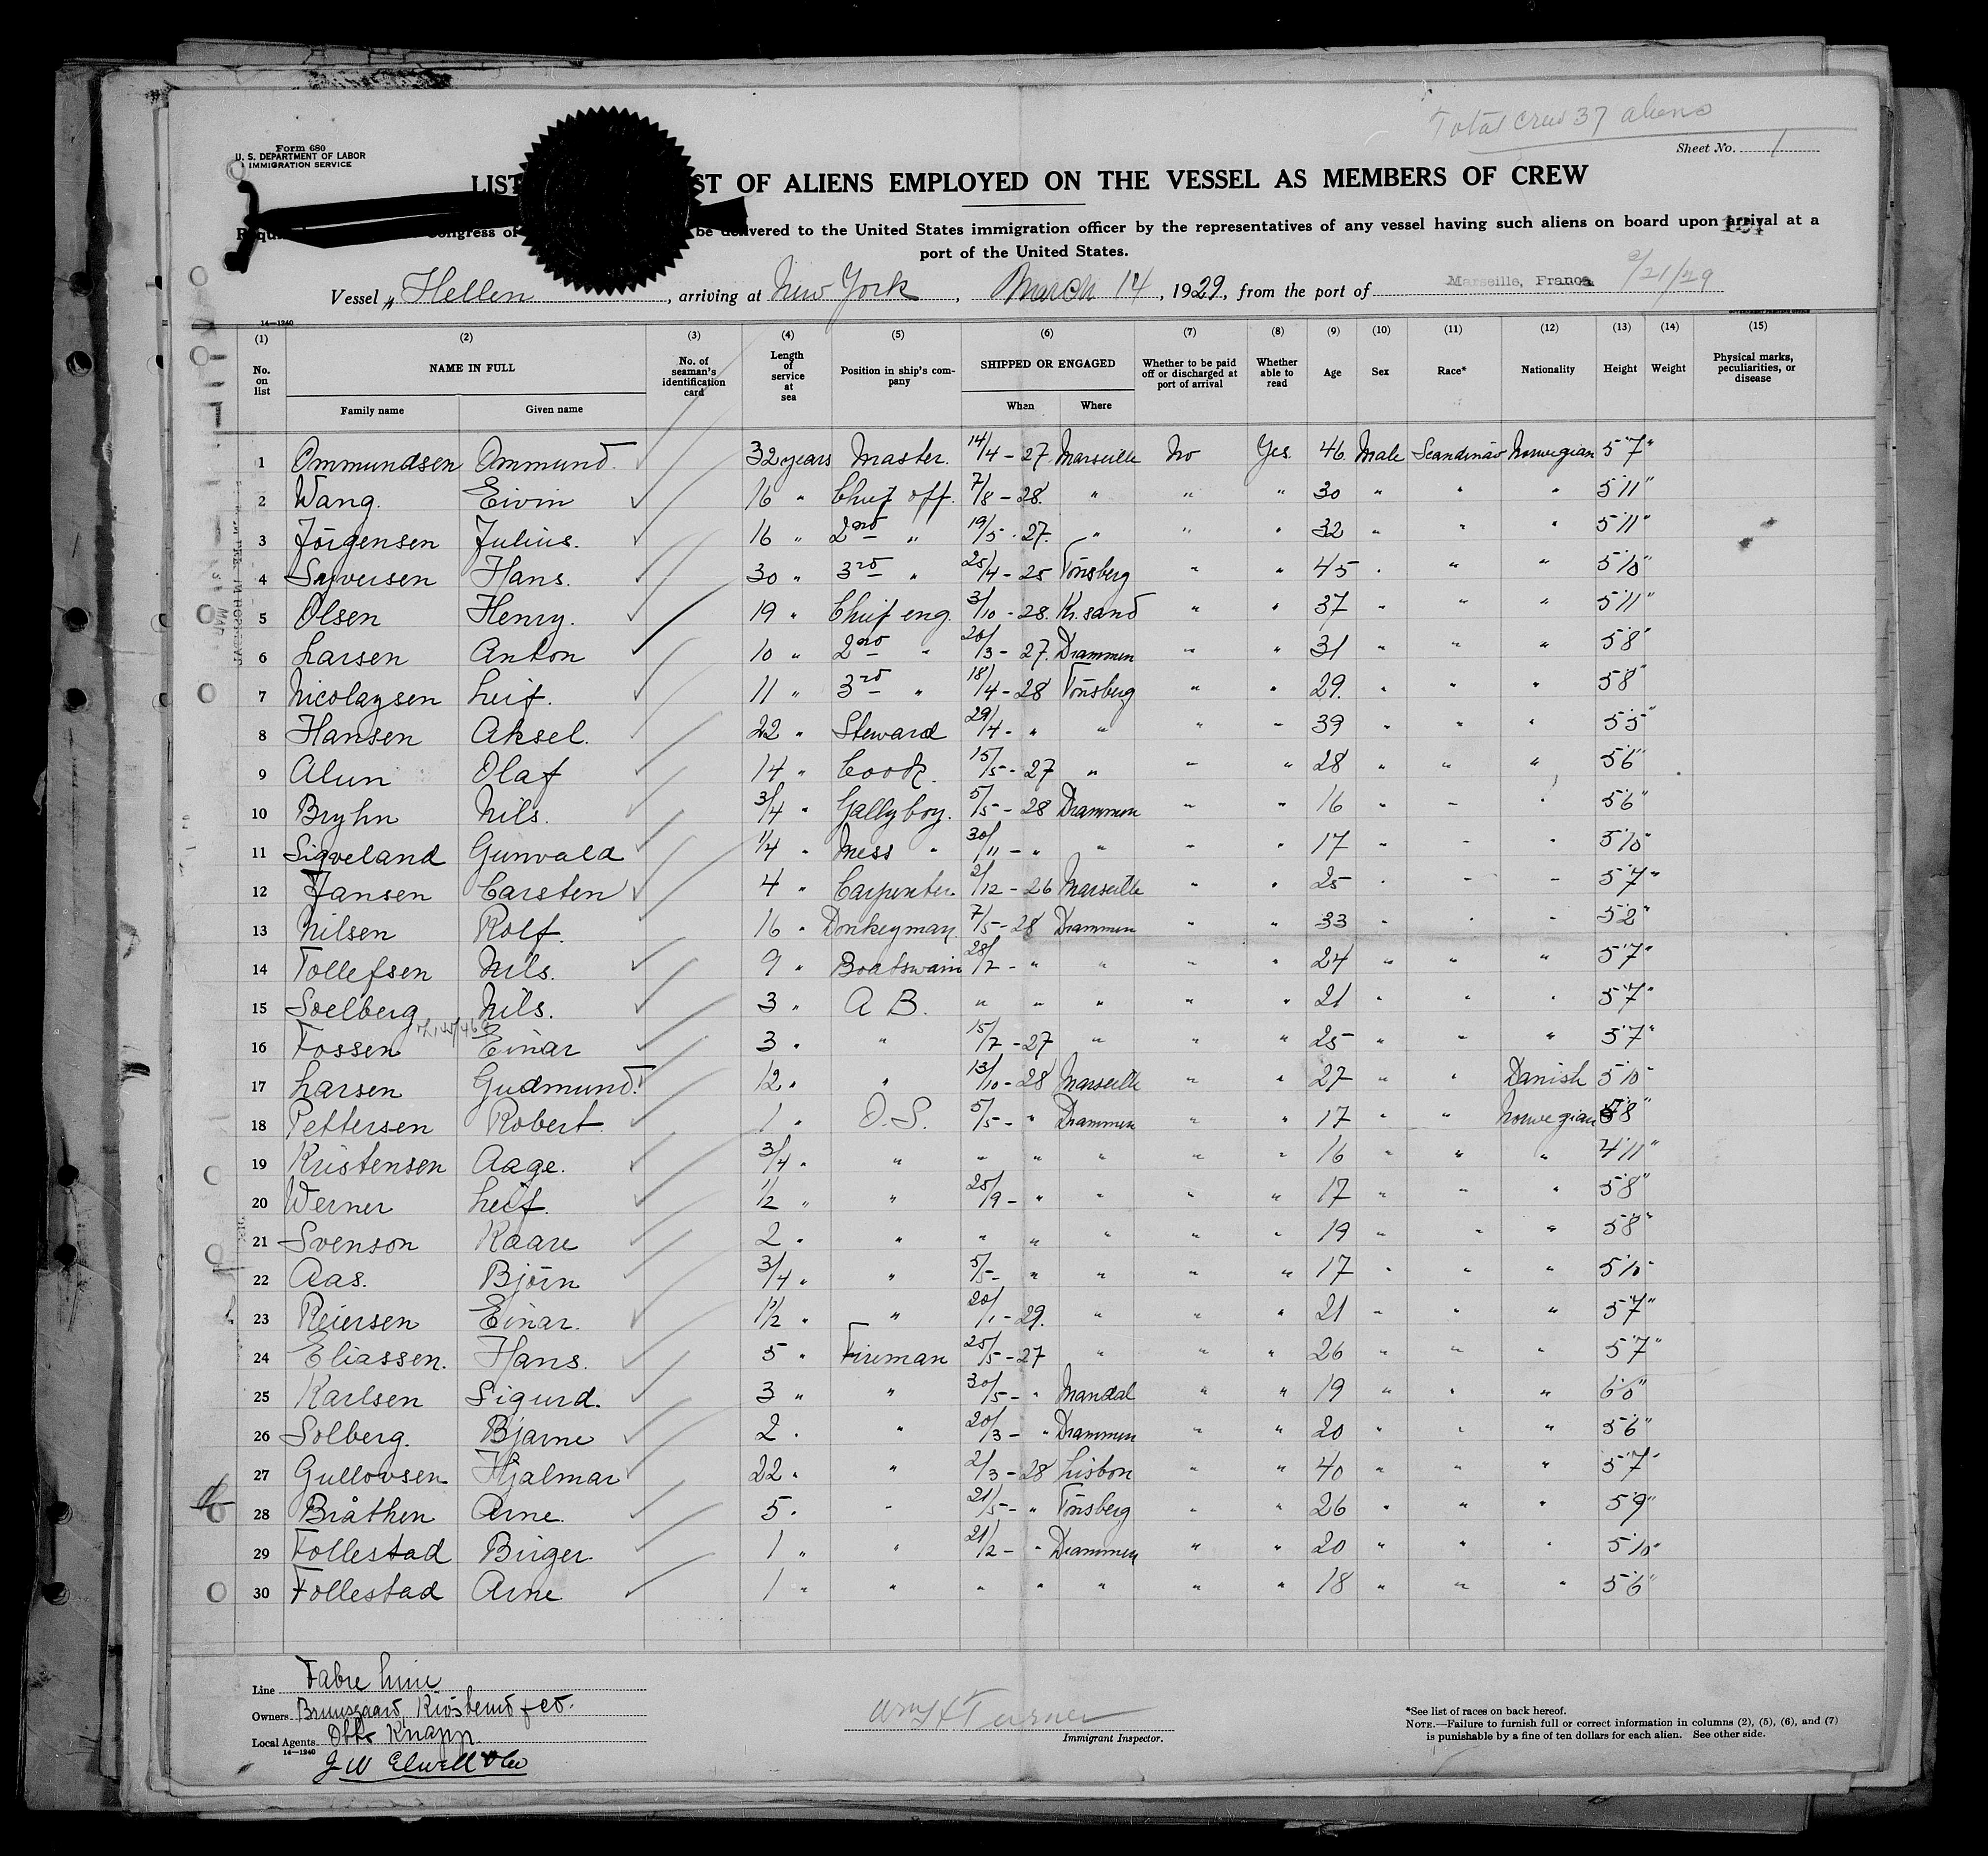 Total crew 37 aliens
Form 680
U. S. DEPARTMENT OF LABOR
IMMIGRATION SERVICE
Sheet No. 1
LIST ST OF ALIENS EMPLOYED ON THE VESSEL AS MEMBERS OF CREW
Congress of be delivered to the United States immigration officer by the representatives of any vessel having such aliens on board upon arrival at a
port of the United States.
Vessel „Hellen , arriving at New York , March 14 , 1929 , from the port of Marseille, France 2/21/29
14—1240
(1) (2) (3) (4) (5) (6) (7) (8) (9) (10) (11) (12) (13) (14) (15)
No. on list NAME IN FULL Family name Given name No. of seaman's identification card Length of service at sea Position in ship's company SHIPPED OR ENGAGED When Where Whether to be paid off or discharged at port of arrival Whether able to read Age Sex Race* Nationality Height Weight Physical marks, peculiarities, or disease
1 Ommundsen Ommund. 32 years Master. 14/4 - 27 Marseille No Yes. 46 Male Scandinav Norwegian 5'7"
2 Wang. Eivin 16 " Chief off. 7/8 - 28. " " " 30 " " " 5'11"
3 Jörgensen Julius. 16 " 2nd " 19/5 - 27. " " " 32 " " " 5'11"
4 Syversen Hans. 30 " 3rd " 25/4 - 25 Tönsberg " " 45 " " " 5'10"
5 Olsen Henry. 19 " Chief eng. 3/10 - 28. Kr.sand " " 37 " " " 5'11"
6 Larsen Anton 10 " 2nd " 20/3 - 27. Drammen " " 31 " " " 5'8"
7 Nicolaysen Leif. 11 " 3rd " 18/4 - 28 Tönsberg " " 29. " " " 5'8"
8 Hansen Aksel. 22 " Steward 29/4 - " " " " 39 " " " 5'5"
9 Alun Olaf 14 " Cook. 15/5 - 27 " " " 28 " " " 5'6"
10 Bryhn Nils. 3/4 " Gallyboy. 5/5 - 28 Drammen " " 16 " " " 5'6"
11 Sigveland Gunvald 1/4 " Mess " 30/11 - " " " " 17 " " " 5'10"
12 Jansen Carsten 4 " Carpenter. 2/12 - 26 Marseille " " 25 " " " 5'7"
13 Nilsen Rolf. 16 " Donkeyman. 7/5 - 28 Drammen " " 33 " " " 5'2"
14 Tollefsen Nils. 9 " Boatswain 28/2 - " " " " 24 " " " 5'7"
15 Soelberg Nils. 3 " A B. " " " " " 21 " " " 5'7"
16 Fossen Einar 3 " " 15/7 - 27 " " " 25 " " " 5'7"
17 Larsen Gudmund. 12 " " 13/10 - 28 Marseille " " 27 " " Danish 5'10"
18 Pettersen Robert 1 " O.S. 5/5 - " Drammen " " 17 " " Norwegian 5'8"
19 Kristensen Aage. 3/4 " " " " " " " 16 " " " 4'11"
20 Werner Leif. 1/2 " " 25/9 - " " " " 17 " " " 5'8"
21 Svenson Kaare 2 " " " " " " " 19 " " " 5'8"
22 Aas. Björn 3/4 " " 5/5 - " " " " 17 " " " 5'10"
23 Reiersen Einar. 1 1/2 " " 20/1 - 29. " " " 21 " " " 5'7"
24 Eliassen. Hans. 5 " Fireman 25/5 - 27 " " " 26 " " " 5'7"
25 Karlsen Sigurd. 3 " " 30/5 - " Mandal " " 19 " " " 6'0"
26 Solberg. Bjarne 2 " " 20/3 - " Drammen " " 20 " " " 5'6"
27 Gullovsen Hjalmar 22 " " 2/3 - 28 Lisbon " " 40 " " " 5'7"
28 Bråthen Arne. 5 " " 21/5 - " Tönsberg " " 26 " " " 5'9"
29 Follestad Birger. 1 " " 21/2 - " Drammen " " 20 " " " 5'10"
30 Follestad Arne 1 " " " " " " " 18 " " " 5'6"
Line Fabre Line
Owners Bruusgaard, Kiösterud & Co.
Local Agents Otto Knapp.
14—1240
J W Elwell & Co
Wm H Turner
Immigrant Inspector.
*See list of races on back hereof.
NOTE.—Failure to furnish full or correct information in columns (2), (5), (6), and (7)
is punishable by a fine of ten dollars for each alien. See other side.